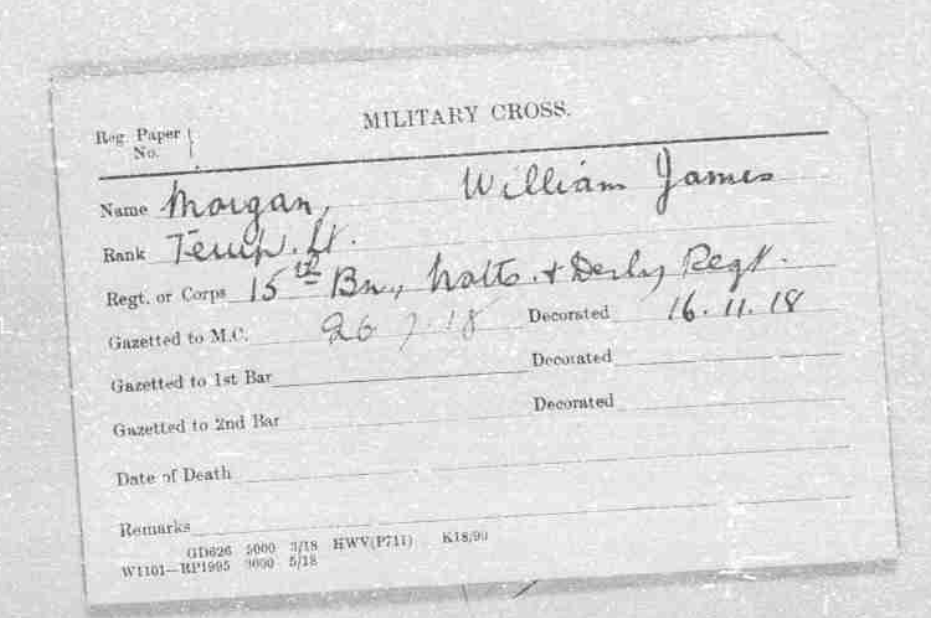 MILITARY CROSS.
Reg. Paper No.
Name Morgan, William James
Rank Temp. Lt.
Regt. or Corps 15th Bn, Notts. + Derby Regt.
Gazetted to M.C. 26.7.18 Decorated 16.11.18
Gazetted to 1st Bar Decorated
Gazetted to 2nd Bar Decorated
Date of Death
Remarks
GD626 5000 3/18 HWV(P711) K18/90
W1101—RP1995 3000 5/18